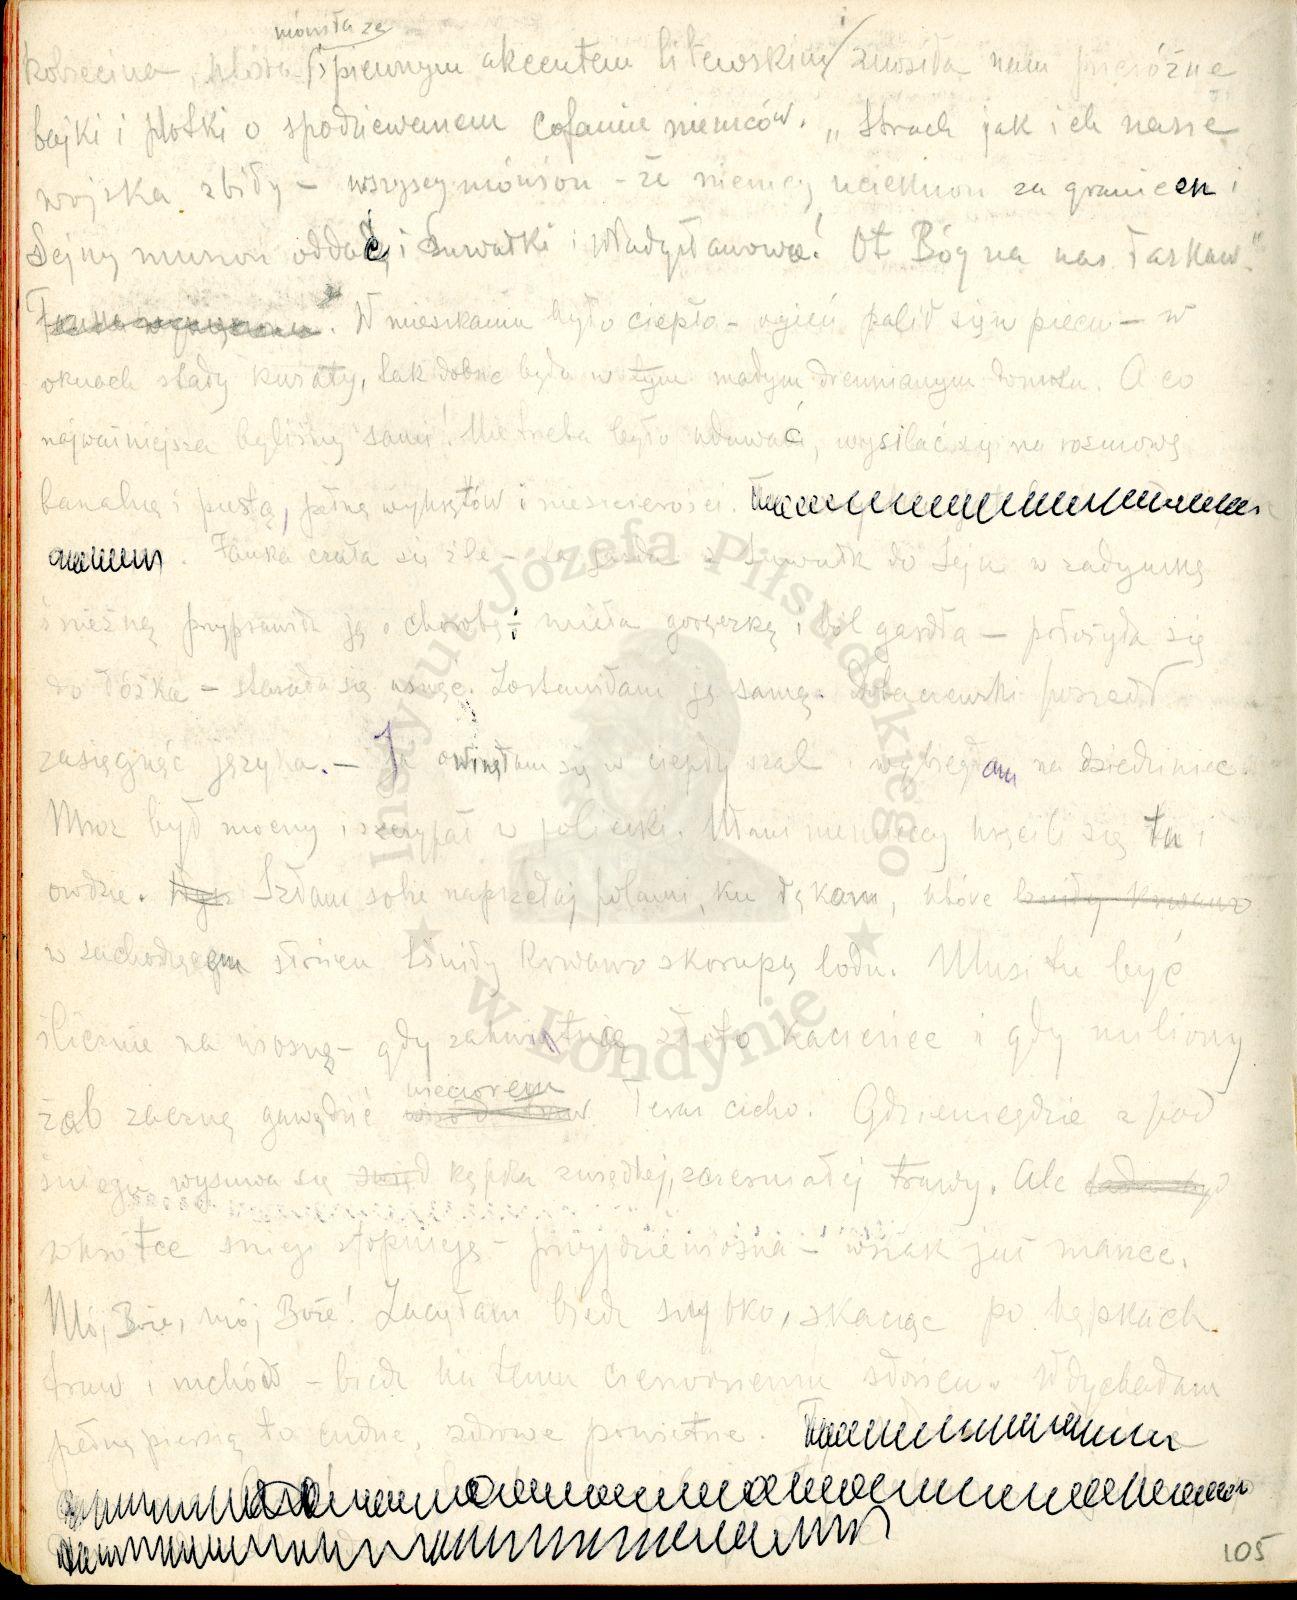 mówiła ze
kobiecina, która śpiewnym akcentem litewskim znosiła nam przeróżne
bajki i plotki o spodziewanem cofaniu niemców. „Strach jak ich nasze
wojska zbiły – wszyscy mówion – że niemcy ucieknon za granicen i
Sejny muson oddać i Suwałki i Władysławowo! Ot Bóg na nas łaskaw"
W mieszkaniu było ciepło – ogień palił się w piecu – w
oknach stały kwiaty, tak dobrze było w tym małym drewnianym domku. A co
najważniejsza byliśmy sami! Nie trzeba było udawać, wysilać się na rozmowę
banalną i pustą, pełną wykrętów i nieszczerości.
Janka czuła się źle – ta jazda z Suwałk do Sejn w zadymkę
śnieżną przyprawiła ją o chorobę: miała gorączkę i ból gardła – położyła się
do łóżka – starała się usnąć. Zostawiłam ją samą. poszedł
zasięgnąć języka. – Ja owinęłam się w ciepły szal i wybiegłam na dziedziniec.
Mróz był mocny i szczypał w policzki. Ułani niemieccy kręcili się tu i
owdzie. Szłam sobie naprzełaj polami, ku łąkom, które lśniły krwawo
w zachodzącym słońcu lśniły krwawo skorupą lodu. Musi tu być
ślicznie na wiosnę – gdy zakwitnie złoto kaczeniec i gdy miliony
żab zaczną gawędzić wieczorem Teraz cicho. Gdzieniegdzie z pod
śniegu wysuwa się kępka zwiędłej, zczerniałej trawy. Ale
wkrótce śniegi stopnieją – przyjdzie wiosna – wszak już marzec.
Mój Boże, mój Boże! Zaczęłam biedz szybko, skacząc po kępkach
traw i mchów – biedz ku temu czerwonemu słońcu. Wdychałam
pełną piersią to cudne, zdrowe powietrze.
105
Instytut Józefa Piłsudskiego
w Londynie